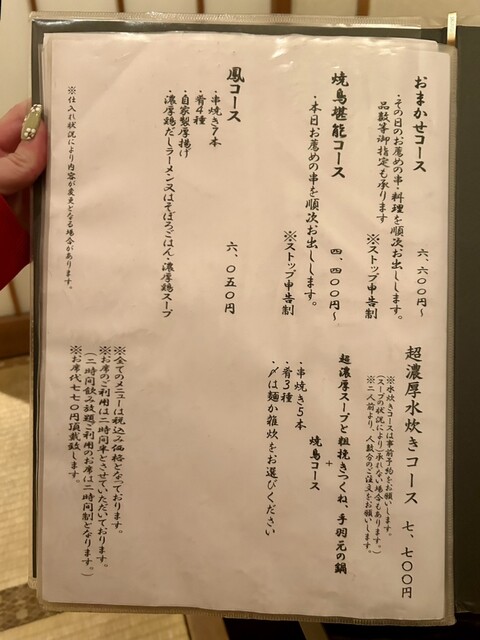 おまかせコース 六、六〇〇円～
・その日のお薦めの串・料理を順次お出しします。
品数等御指定も承ります ※ストップ申告制
焼鳥堪能コース 四、四〇〇円～
・本日お薦めの串を順次お出しします。
※ストップ申告制
鳳コース 六、〇五〇円
・串焼き7本
・肴4種
・自家製厚揚げ
・濃厚鶏だしラーメン又はそぼろごはん・濃厚鶏スープ
※仕入れ状況により内容が変更となる場合があります。
超濃厚水炊きコース 七、七〇〇円
※水炊きコースは事前予約をお願いします。
(スープの状況によりご承れない場合もあります。)
※二人前より、人数分のご注文をお願いします。
超濃厚スープと粗挽きつくね、手羽元の鍋
+
焼鳥コース
・串焼き5本
・肴3種
・〆は麺か雑炊をお選びください
※全てのメニューは税込み価格となっております。
※お席のご利用は二時間半とさせていただいております。
(二時間飲み放題ご利用のお席は二時間制となります。)
※お席代七七〇円頂戴致します。